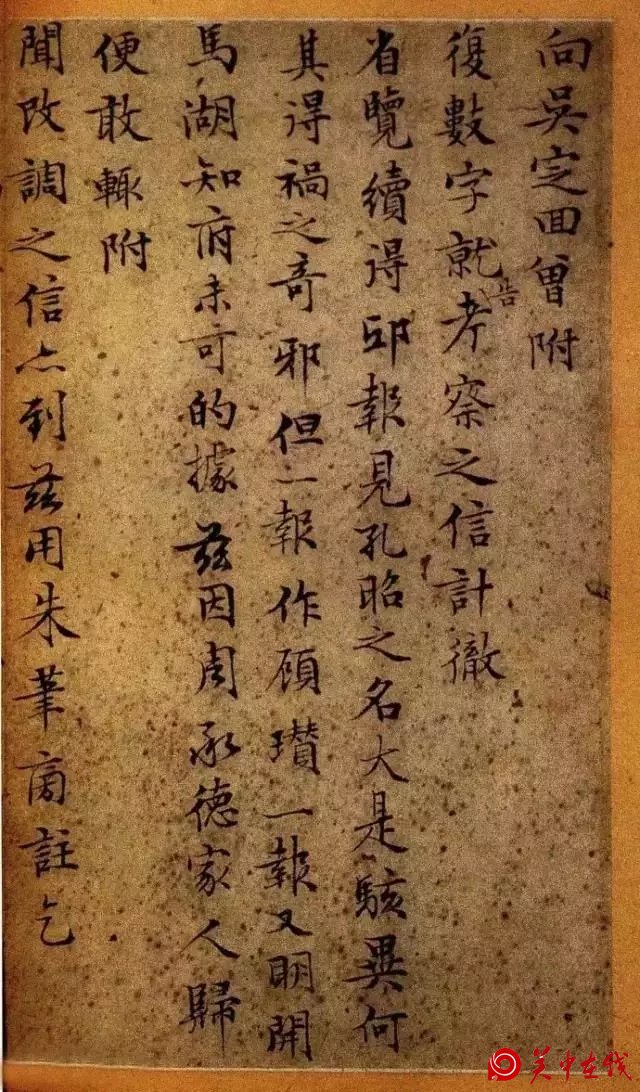 向吳定回曾附
復數字就告考察之信計徹
省覽續得邸報見孔昭之名大是駭異何
其得禍之奇邪但一報作頋瓚一報又明開
馬湖知府未可的據茲因周承德家人歸
便敢輒附
聞改調之信亦到茲用朱筆商註乞
关中在线